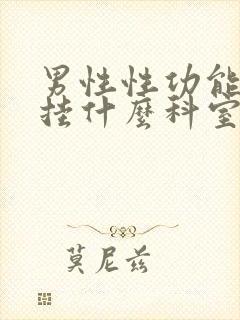 男性性功能
挂什麼科室
莫尼兹